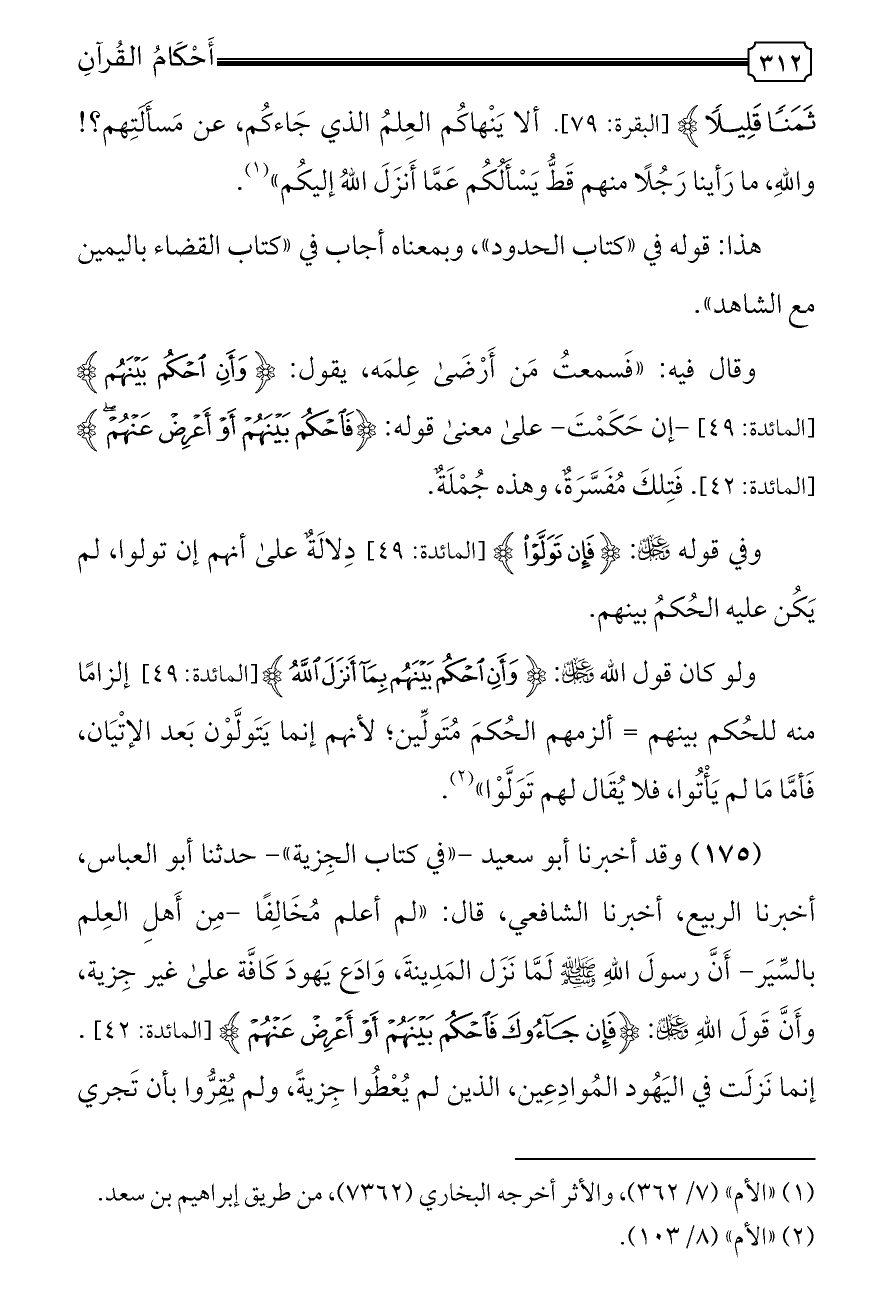 ٣١٢ أَحْكَامُ القُرآنِ
ثَمَنًا قَلِيلًا ﴾ [البقرة: ٧٩]. ألا يَنْهاكُم العِلمُ الذي جَاءكُم، عن مَسأَلَتِهم؟!
واللهِ، ما رَأينا رَجُلًا منهم قَطُّ يَسْأَلُكُم عَمَّا أَنزَلَ اللهُ إليكُم»(١).
هذا: قوله في «كتاب الحدود»، وبمعناه أجاب في «كتاب القضاء باليمين
مع الشاهد».
وقال فيه: «فَسمعتُ مَن أَرْضَىٰ عِلمَه، يقول: ﴿ وَأَنِ ٱحْكُم بَيْنَهُم ﴾
[المائدة: ٤٩] -إن حَكَمْتَ- علىٰ معنىٰ قوله: ﴿فَٱحْكُم بَيْنَهُمْ أَوْ أَعْرِضْ عَنْهُمْ ۖ ﴾
[المائدة: ٤٢]. فَتِلكَ مُفَسَّرَةٌ، وهذه جُمْلَةٌ.
وفي قوله ﷿: ﴿ فَإِن تَوَلَّوْا۟ ﴾ [المائدة: ٤٩] دِلالَةٌ علىٰ أنهم إن تولوا، لم
يَكُن عليه الحُكمُ بينهم.
ولو كان قول الله ﷿: ﴿ وَأَنِ ٱحْكُم بَيْنَهُم بِمَآ أَنزَلَ ٱللَّهُ ﴾ [المائدة: ٤٩] إلزامًا
منه للحُكم بينهم = ألزمهم الحُكمَ مُتَولِّين؛ لأنهم إنما يَتَولَّوْن بَعد الإتْيَان،
فَأمَّا مَا لم يَأْتُوا، فلا يُقَال لهم تَوَلَّوْا»(٢).
(١٧٥) وقد أخبرنا أبو سعيد -«في كتاب الجِزية»- حدثنا أبو العباس،
أخبرنا الربيع، أخبرنا الشافعي، قال: «لم أعلم مُخَالِفًا -مِن أَهلِ العِلم
بالسِّيَر- أنَّ رسولَ اللهِ ﷺ لَمَّا نَزَل المَدِينةَ، وَادَع يَهودَ كَافَّة علىٰ غير جِزية،
وأنَّ قَولَ اللهِ ﷿: ﴿فَإِن جَآءُوكَ فَٱحْكُم بَيْنَهُمْ أَوْ أَعْرِضْ عَنْهُمْ ﴾ [المائدة: ٤٢] .
إنما نَزلَت في اليَهُود المُوادِعِين، الذين لم يُعْطُوا جِزيةً، ولم يُقِرُّوا بأن تَجري
(١) «الأم» (٧/ ٣٦٢)، والأثر أخرجه البخاري (٧٣٦٢)، من طريق إبراهيم بن سعد.
(٢) «الأم» (٨/ ١٠٣).